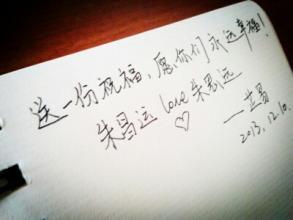 送一份祝福，愿你们永远幸福！
朱昌运 love 朱思远
——芷易
2013.12.10.